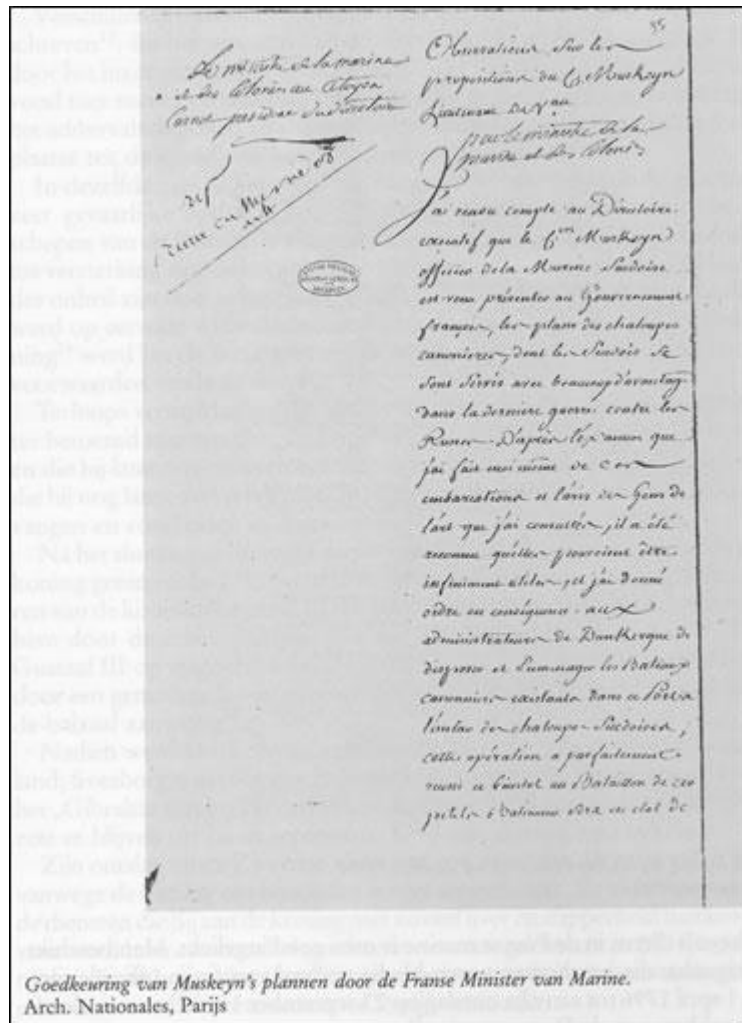 55
Le ministre de la marine
et des Colonies au Citoyen
Carnot président du Directoire
Observations sur les
propositions du C. Muskeyn
Lieutenant de Vau
par le ministre de la
marine et des Colonies
J'ai rendu compte au Directoire
executif que le Cen Muskeyn
officier de la Marine Suédoise
est venu présenter au Gouvernement
français, les plans des chaloupes
canonnières, dont les Suédois se
sont servis avec beaucoup d'avantage
dans la derniere guerre contre les
Russes. D'après l'examen que
j'ai fait moi même de ces
embarcations et l'avis des Gens de
l'art que j'ai consultés, il a été
reconnu qu'elles pouvoient être
infiniment utiles, et j'ai donné
ordre en conséquence aux
administrateurs de Dunkerque de
disposer et d'emmenager les Bateaux
canonniers existants dans ce Port à
l'instar des chaloupes Suédoises;
cette opération a parfaitement
réussi et bientôt un Bataillon de ces
petits Bâtimens sera en état de
Goedkeuring van Muskeyn's plannen door de Franse Minister van Marine.
Arch. Nationales, Parijs